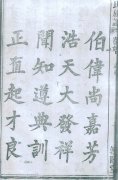 伯偉尚嘉芳
浩天大發祥
聞知遵典訓
正直起才良